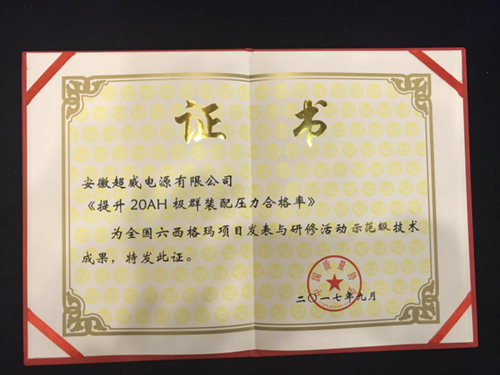 证书
安徽超威电源有限公司
《提升20AH极群装配压力合格率》
为全国六西格玛项目发表与研修活动示范级技术
成果，特发此证。
中国质量协会
二〇一七年九月